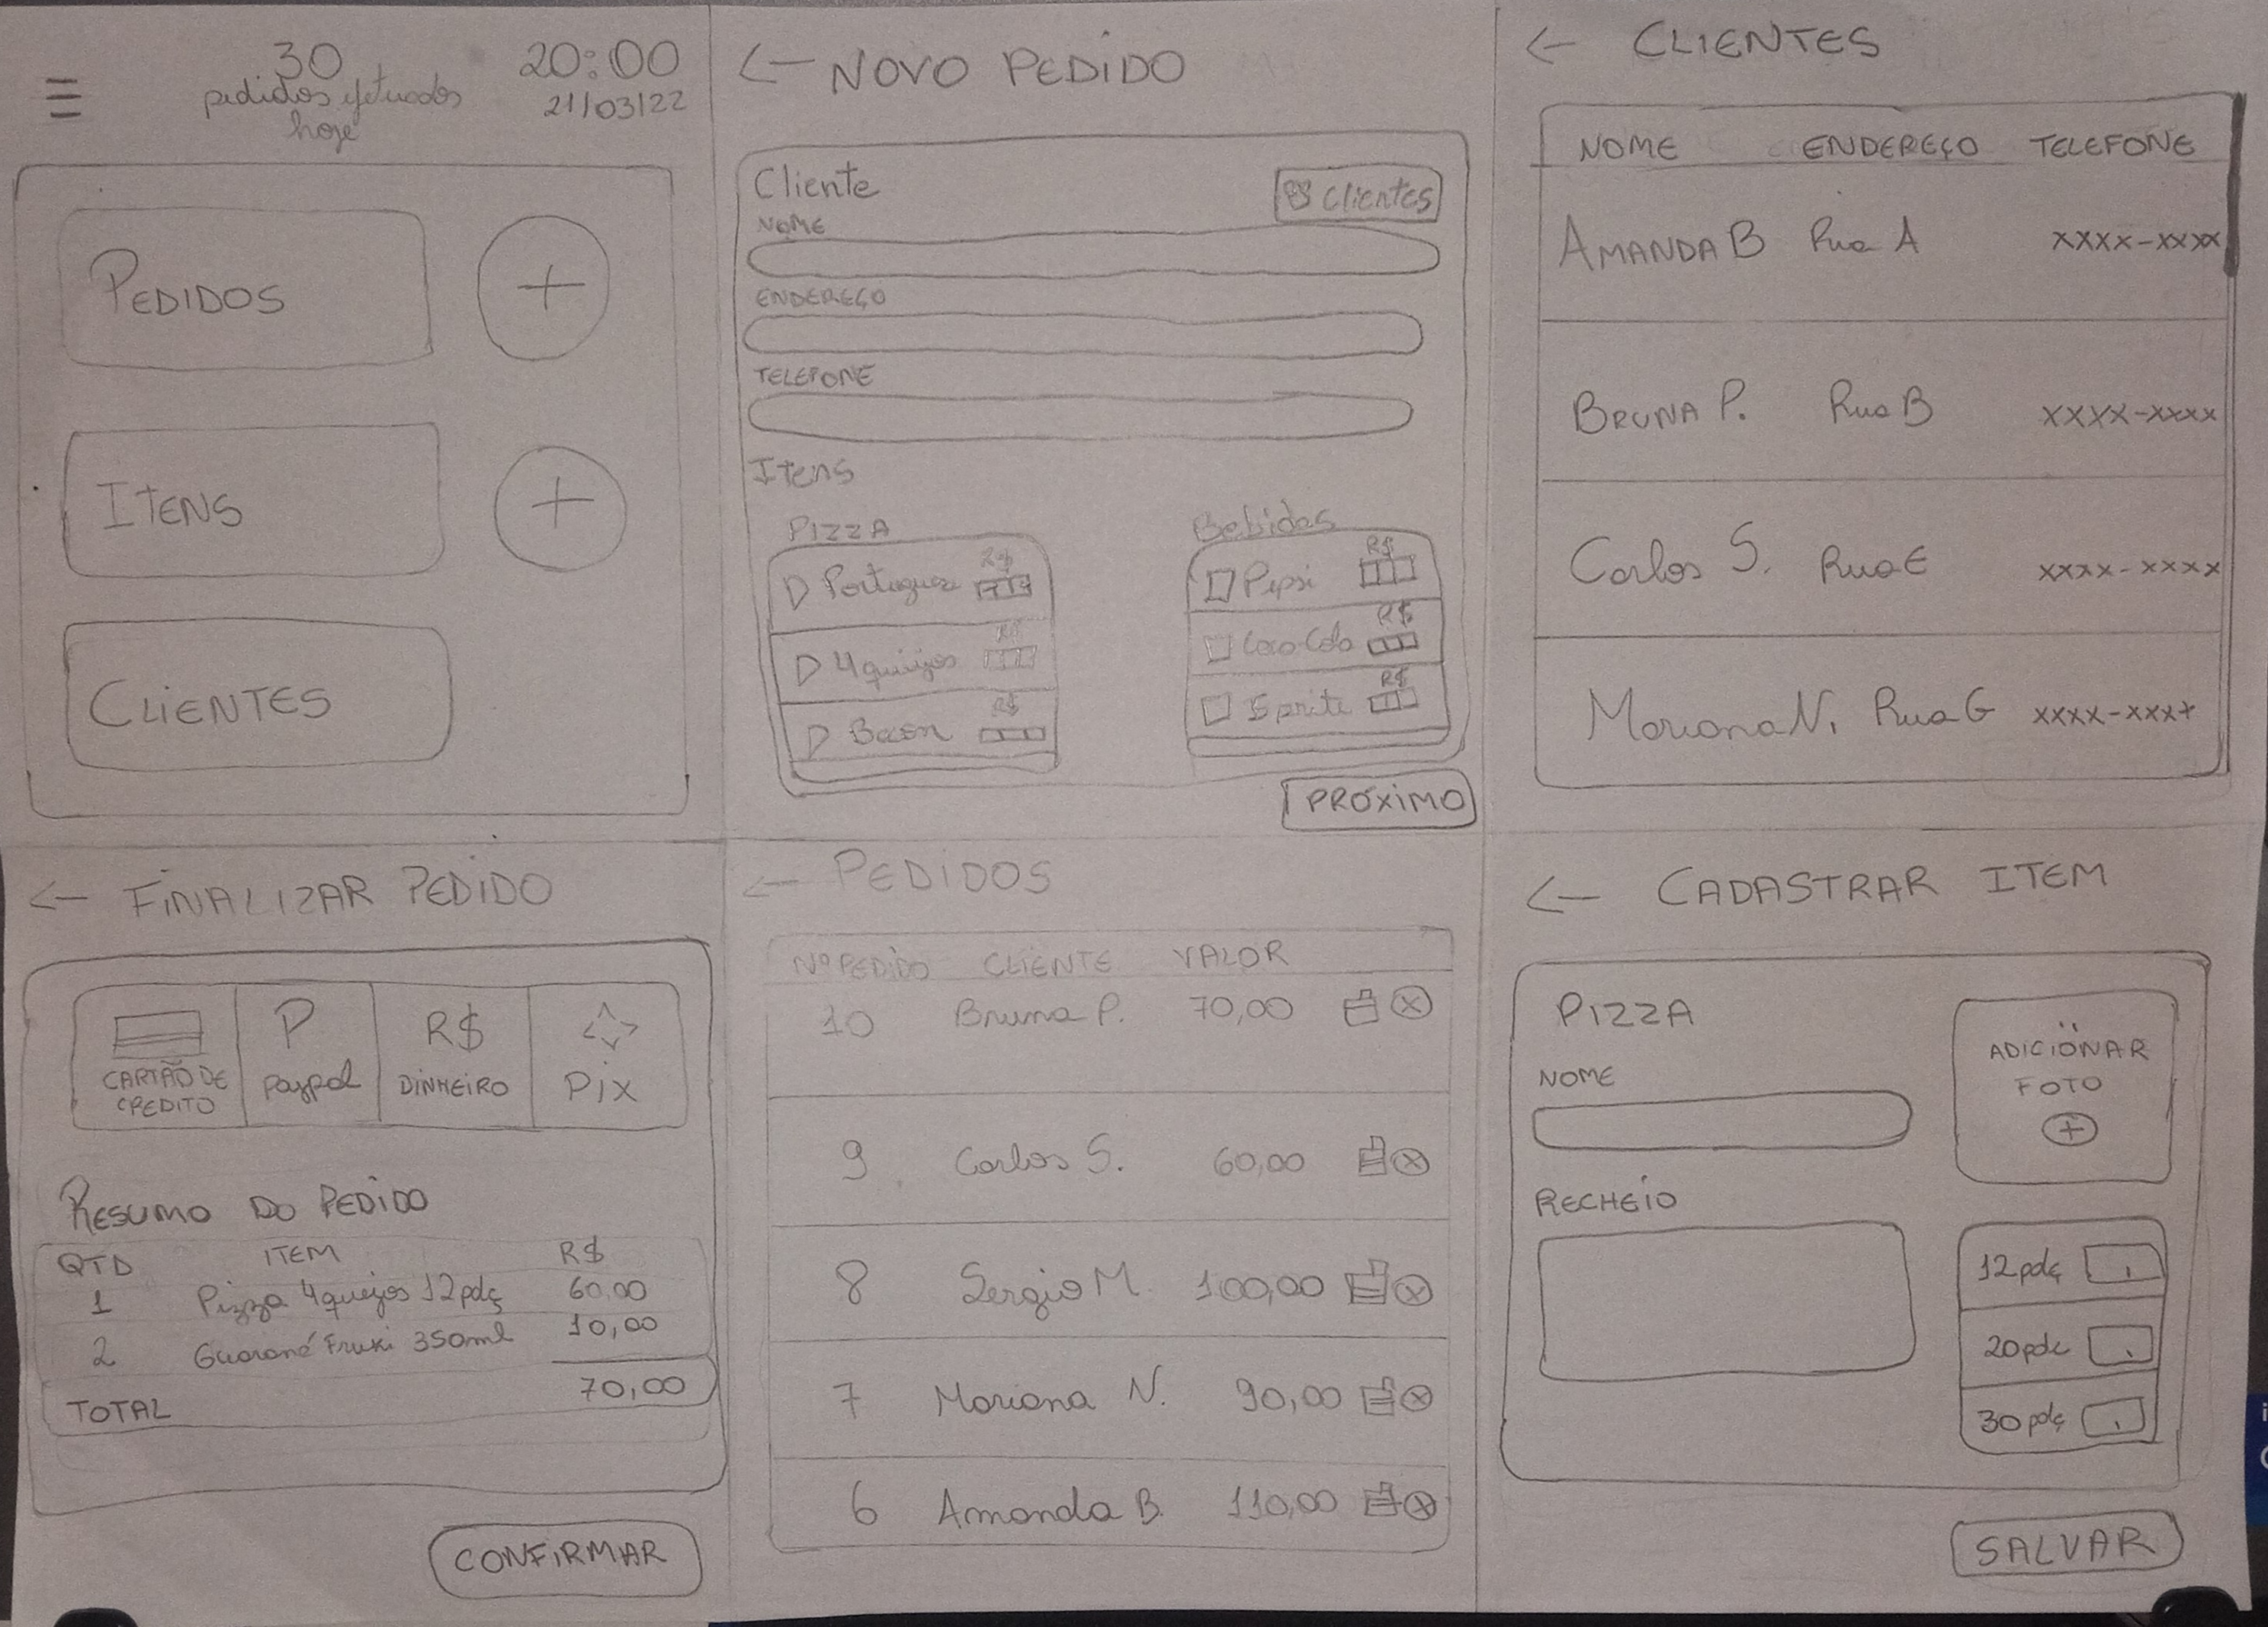 30
pedidos efetuados
hoje
20:00
21/03/22
PEDIDOS
+
ITENS
+
CLIENTES
← NOVO PEDIDO
Cliente
Clientes
NOME
ENDEREÇO
TELEFONE
Itens
PIZZA
Portuguesa R$
4 queijos R$
Bacon R$
Bebidas
Pepsi R$
Coca-Cola R$
Sprite R$
PRÓXIMO
← CLIENTES
NOME ENDEREÇO TELEFONE
AMANDA B Rua A xxxx-xxxx
BRUNA P. Rua B xxxx-xxxx
Carlos S. Rua E xxxx-xxxx
Mariana N. Rua G xxxx-xxxx
← FINALIZAR PEDIDO
CARTÃO DE
CREDITO
P
Paypal
R$
DINHEIRO
PIX
RESUMO DO PEDIDO
QTD ITEM R$
1 Pizza 4 queijos 12 pdç 60,00
2 Guaraná Fruki 350ml 10,00
TOTAL 70,00
CONFIRMAR
← PEDIDOS
Nº PEDIDO CLIENTE VALOR
10 Bruna P. 70,00
9 Carlos S. 60,00
8 Sergio M. 100,00
7 Mariana N. 90,00
6 Amanda B. 110,00
← CADASTRAR ITEM
PIZZA
NOME
RECHEIO
ADICIONAR
FOTO
+
12 pdç ,
20 pdç ,
30 pdç ,
SALVAR